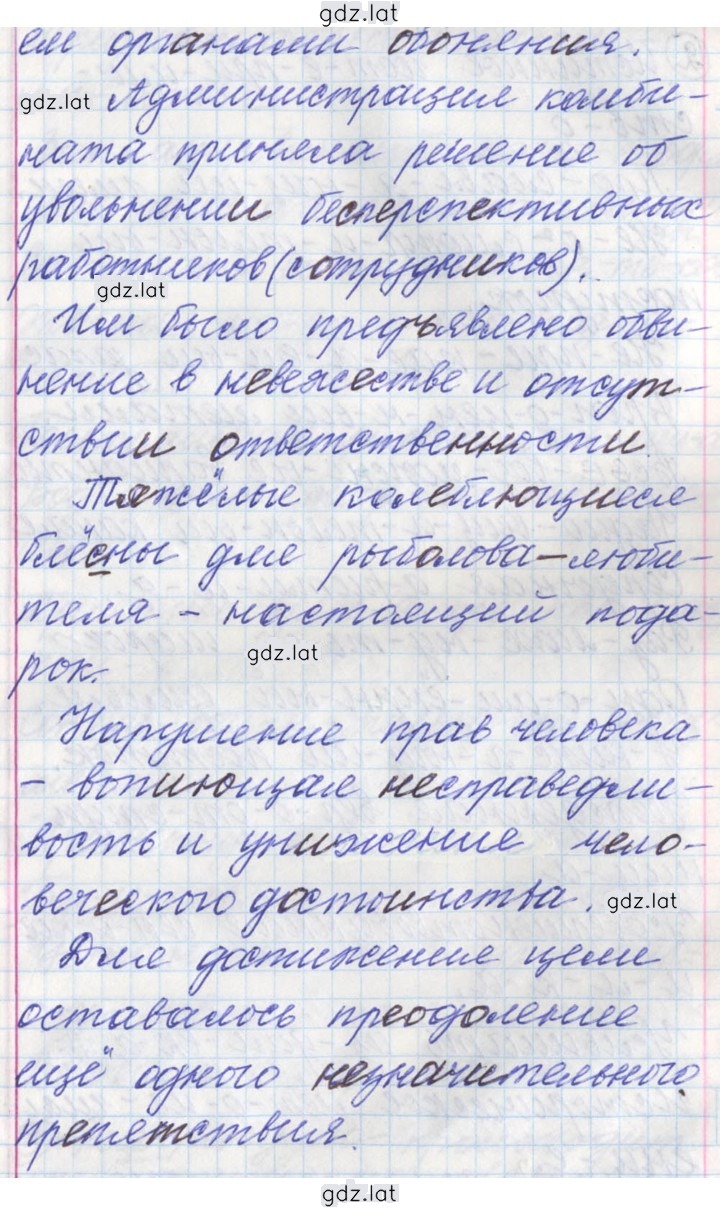 gdz.lat
ем органами обоняния.
gdz.lat Администрация комби-
ната приняла решение об
увольнении бесперспективных
работников (сотрудников).
gdz.lat
Им было предъявлено обви-
нение в невежестве и отсут-
ствии ответственности.
Тяжёлые колеблющиеся
блёсны для рыболова-люби-
теля - настоящий пода-
gdz.lat
рок.
Нарушение прав человека
- вопиющая несправедли-
вость и унижение чело-
веческого достоинства. gdz.lat
Для достижения цели
оставалось преодоление
ещё одного незначительного
препятствия.
gdz.lat